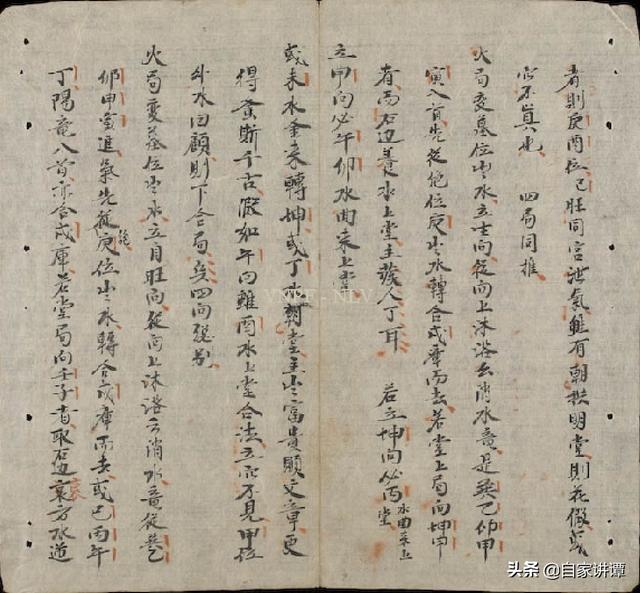 者則庚酉位已旺同宮泄氣雖有朝拱明堂則花假或
宮不真也　四局同推
火局变墓位出水立向從向上沐浴去消水竜是巽巳卯甲
寅入首先從絕位庚出水轉合戌庫而去若堂上局向坤申
者而右边養水上堂主發人丁耳　若立坤向必丙水曲來上堂
立甲向必午卯水曲來上堂
或未水金來轉坤或丁水朝堂主出富貴顯文章更
得蓄斯千古假如午向雖酉水上堂合法立而不見甲位
斗水回顧則下合局矣四向發別
火局变墓位出水立自旺向從向上沐浴方消水竜從艮
卯甲寅進氣先從庚位出水轉合戌庫而去或巳丙午
絶
丁陽竜入首亦合戌庫若堂局向壬子者取右边衰方水道
VNPF - NLV
头条 @自家讲谭